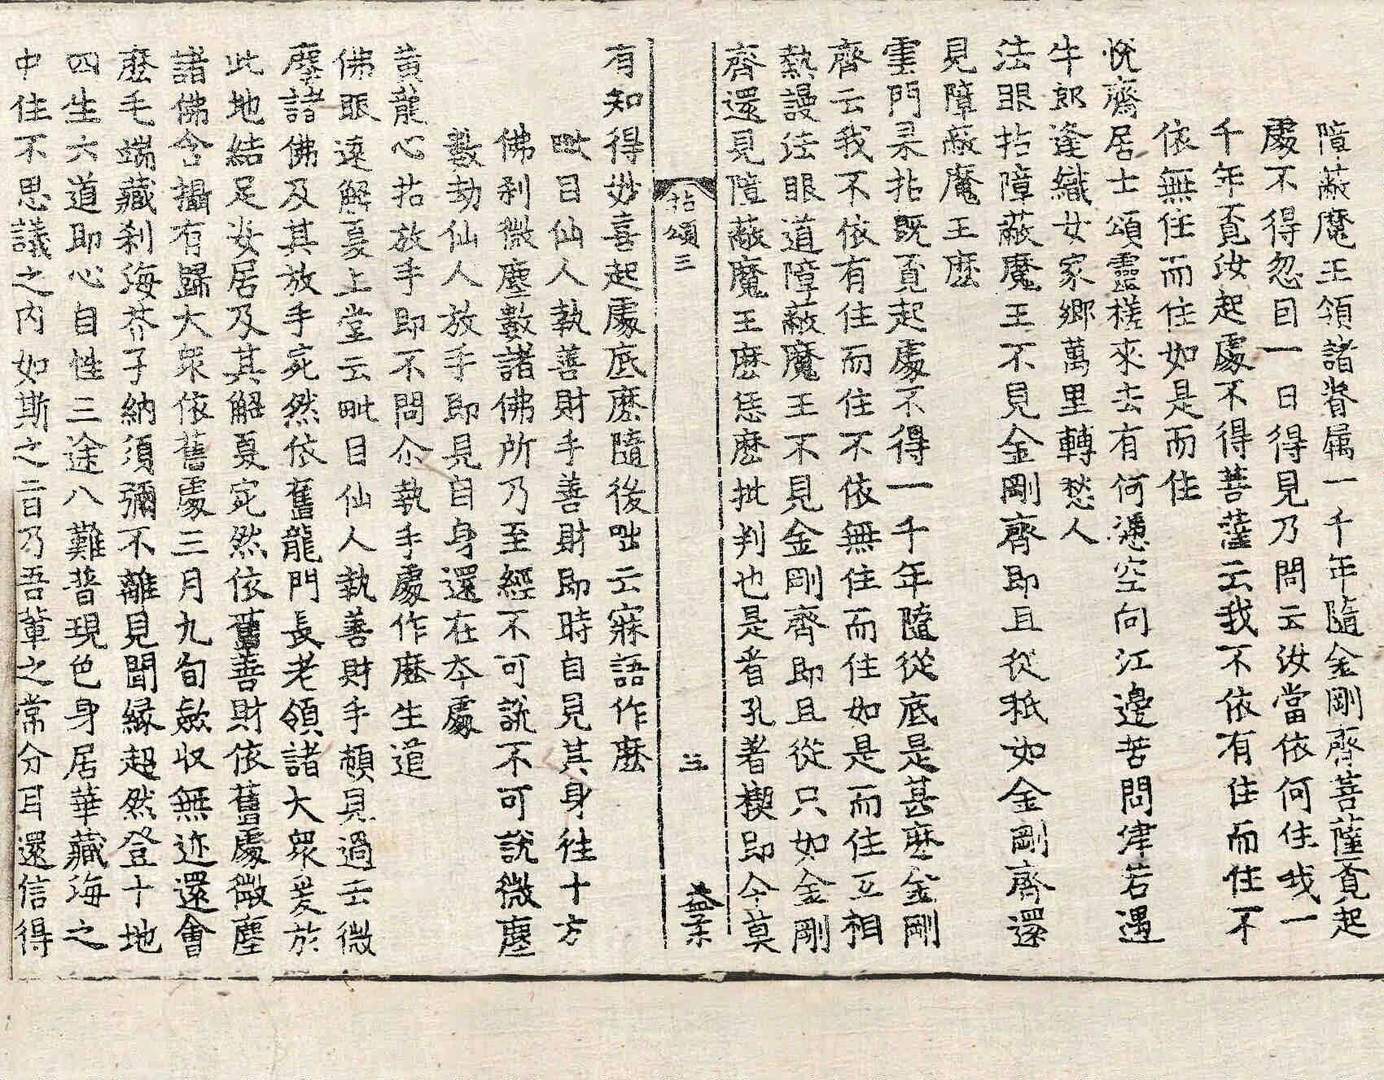 障蔽魔王領諸眷属一千年隨金剛齊菩薩覔起
處不得忽目一日得見乃問云汝當依何住我一
千年覔汝起處不得菩薩云我不依有住而住不
依無住而住如是而住
悅齋居士頌靈槎來去有何憑空向江邊苦問津若遇
牛郎逢織女家鄉萬里轉愁人
法眼拈障蔽魔王不見金剛齊即且從秖如金剛齊還
見障蔽魔王麽
雲門杲拈既覔起處不得一千年隨從底是甚麽金剛
齊云我不依有住而住不依無住而住如是而住互相
熱謾法眼道障蔽魔王不見金剛齊即且從只如金剛
齊還見障蔽魔王麽恁麽批判也是看孔著楔即今莫
拈頌三
三
益玄
有知得妙喜起處底麽隨後咄云寐語作麽
毗目仙人執善財手善財即時自見其身往十方
佛刹微塵數諸佛所乃至經不可說不可說微塵
數劫仙人放手即見自身還在夲處
黄龍心拈放手即不問尒執手處作麽生道
佛眼遠解夏上堂云毗目仙人執善財手頓見過去微
塵諸佛及其放手宛然依舊龍門長老領諸大衆爰於
此地結足安居及其解夏宛然依舊善財依舊處微塵
諸佛含攝有歸大衆依舊處三月九旬斂收無迹還會
麽毛端藏刹海芥子納須彌不離見聞緣超然登十地
四生六道即心自性三途八難普現色身居華藏海之
中住不思議之内如斯之言乃吾輩之常分耳還信得